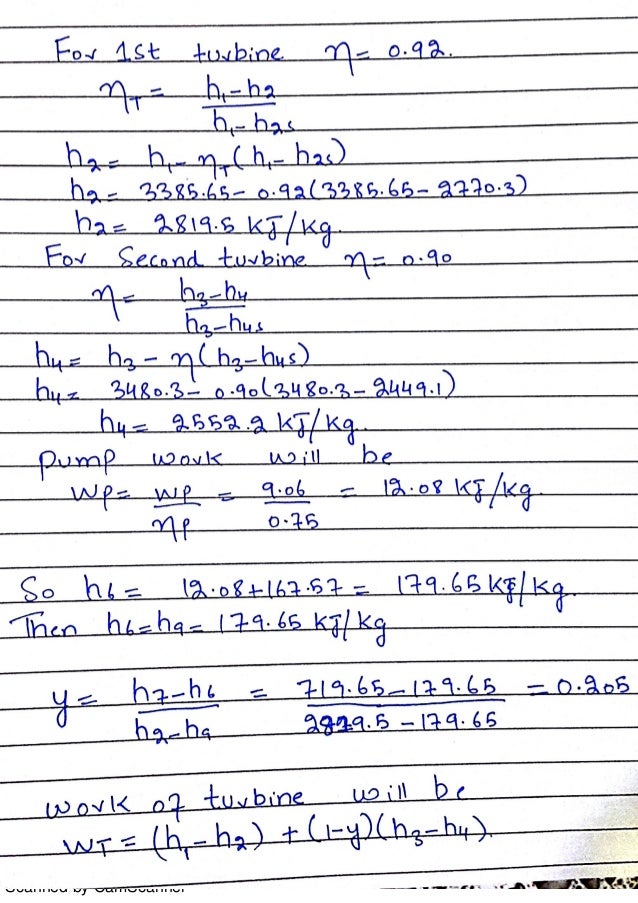 For 1st turbine η = 0.92.
ηT = h1-h2 / h1-h2s
h2 = h1-ηT(h1-h2s)
h2 = 3385.65-0.92(3385.65-2770.3)
h2 = 2819.5 kJ/kg.
For Second turbine η = 0.90
η = h3-h4 / h3-h4s
h4 = h3-η(h3-h4s)
h4 = 3480.3-0.90(3480.3-2449.1)
h4 = 2552.2 kJ/kg.
Pump work will be
WP = WP / ηP = 9.06 / 0.75 = 12.08 kJ/kg.
So h6 = 12.08+167.57 = 179.65 kJ/kg.
Then h6=h9=179.65 kJ/kg
y = h7-h6 / h2-h9 = 719.65-179.65 / 2819.5-179.65 = 0.205
work of turbine will be
WT = (h1-h2) + (1-y)(h3-h4).
Scanned by CamScanner